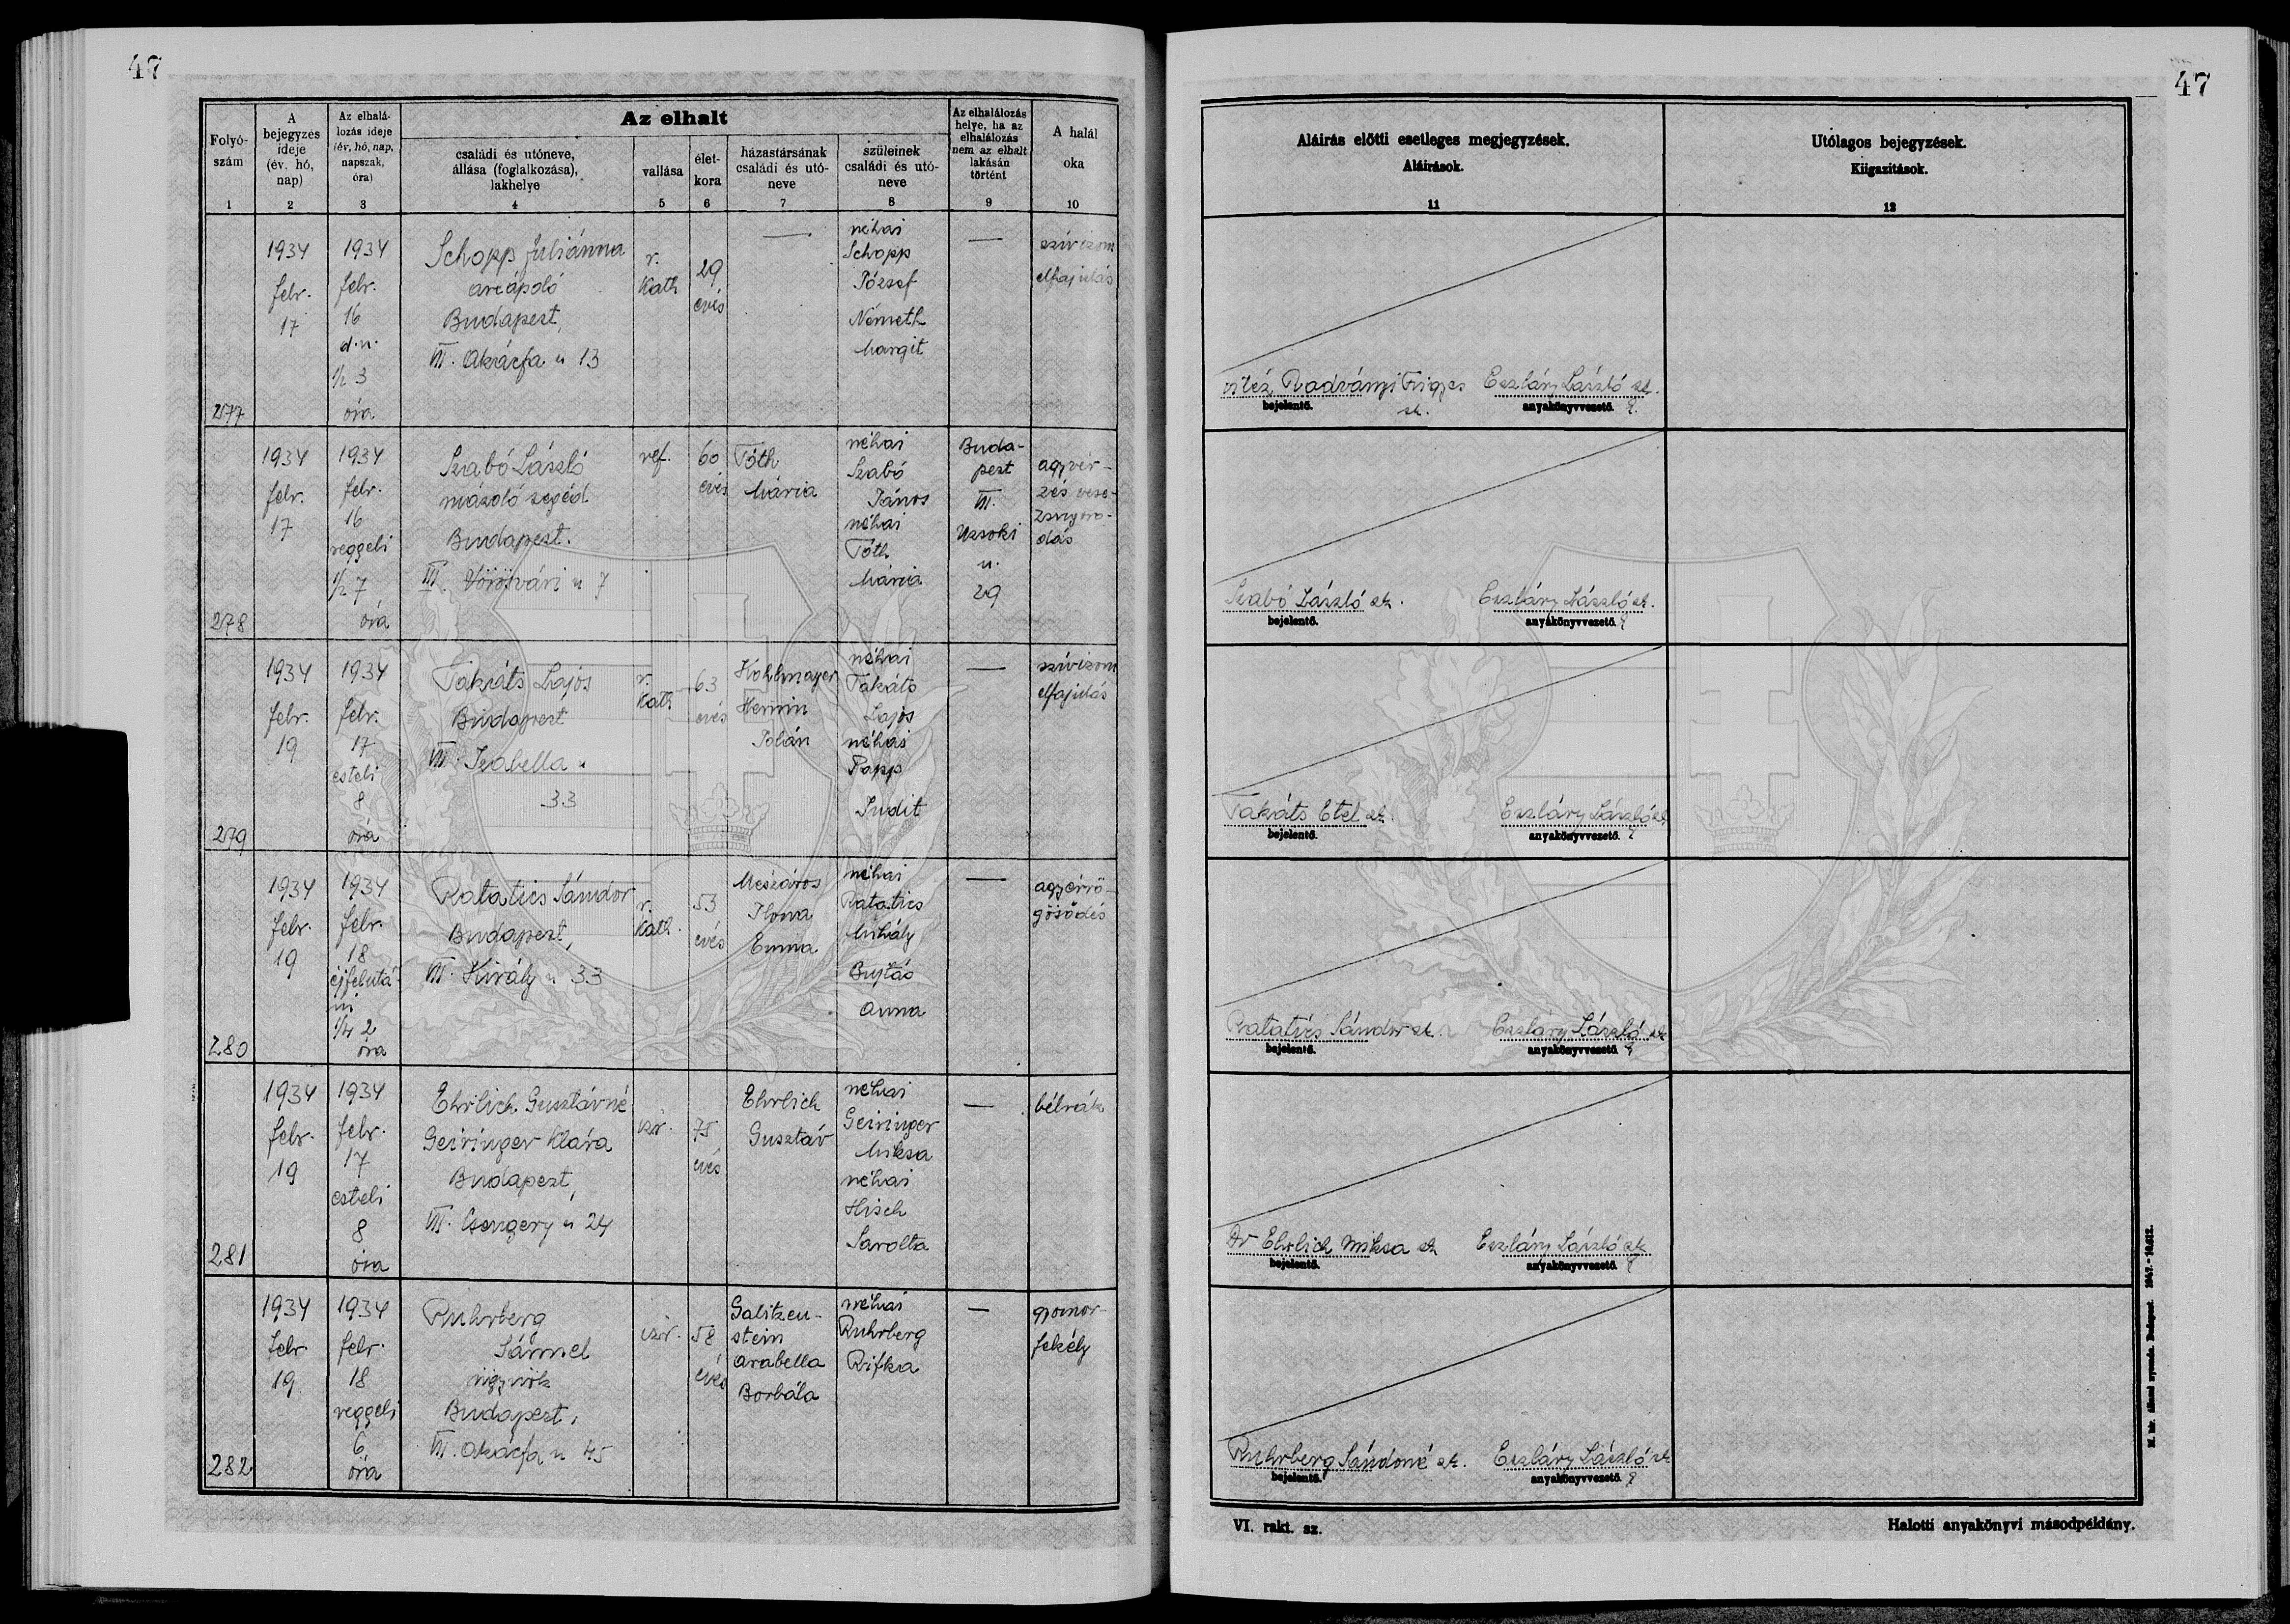 47
Az elhalt
Folyó-
szám
1
A
bejegyzés
ideje
(év. hó,
nap)
2
Az elhalá-
lozás ideje
(év, hó, nap,
napszak,
óra)
3
családi és utóneve,
állása (foglalkozása),
lakhelye
4
vallása
5
élet-
kora
6
házastársának
családi és utó-
neve
7
szüleinek
családi és utó-
neve
8
Az elhalálozás
helye, ha az
elhalálozás
nem az elhalt
lakásán
történt
9
A halál
oka
10
277
1934
febr.
17
1934
febr.
16
d.u.
1/2 3
óra
Schopp Juliánna
arcápoló
Budapest,
VII. Akácfa u 13
r.
kath
29
éves
—
néhai
Schopp
József
Németh
Margit
—
szívizom
elfajulás
278
1934
febr.
17
1934
febr.
16
reggeli
1/2 7
óra
Szabó László
mázoló segéd
Budapest.
III. Vörösvári u 7
ref.
60
éves
Tóth
Mária
néhai
Szabó
János
néhai
Tóth
Mária
Buda-
pest
VII.
Uzsoki
u.
29
agyvér-
zés vese-
zsugoro-
dás
279
1934
febr.
19
1934
febr.
17
esteli
8
óra
Takáts Lajos
Budapest
VII. Izabella u
33
r.
kath
63
éves
Kohlmayer
Hermin
Jolán
néhai
Takáts
Lajos
néhai
Papp
Judit
—
szívizom
elfajulás
280
1934
febr.
19
1934
febr.
18
éjfelutá-
ni
1/4 2
óra
Ratatics Sándor
Budapest,
VII. Király u 33
r.
kath.
53
éves
Mészáros
Ilona
Emma
néhai
Ratatics
Mihály
Bujtás
Anna
—
agyérrö-
gösödés
281
1934
febr.
19
1934
febr.
17
esteli
8
óra
Ehrlich Gusztávné
Geiringer Klára
Budapest,
VII. Csengery u 24
izr.
75
éves
Ehrlich
Gusztáv
néhai
Geiringer
Miksa
néhai
Hisch
Sarolta
—
bélrák
282
1934
febr.
19
1934
febr.
18
reggeli
6
óra
Ruhrberg
Sámuel
ügynök
Budapest,
VII. Akácfa u 45
izr.
58
éves
Galitzen-
stein
Arabella
Borbála
néhai
Ruhrberg
Rifka
—
gyomor-
fekély
47
Aláirás előtti esetleges megjegyzések.
Aláirások.
11
Utólagos bejegyzések.
Kiigazitások.
12
vitéz Radványi Frigyes sk. Eszláry László sk.
bejelentő. anyakönyvvezető.
Szabó László sk. Eszláry László sk.
bejelentő. anyakönyvvezető.
Takáts Etel sk. Eszláry László sk
bejelentő. anyakönyvvezető.
Ratatics Sándor sk. Eszláry László sk
bejelentő. anyakönyvvezető.
Dr Ehrlich Miksa sk Eszláry László sk
bejelentő. anyakönyvvezető.
Ruhrberg Sándoné sk. Eszláry László sk
bejelentő. anyakönyvvezető.
VI. rakt. sz.
Halotti anyakönyvi másodpéldány.